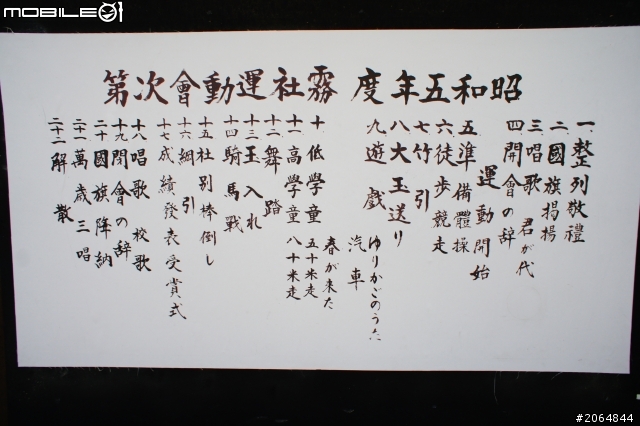 mobile01
昭和五年度 霧社運動會次第
一、整列敬禮
二、國旗揭揚
三、唱歌 君が代
四、開會の辞
運動開始
五、準備體操
六、徒步競走
七、竹引
八、大玉送り
九、遊戲
ゆりかごのうた
汽車
春が来た
十、低學童 五十米走
十一、高學童 八十米走
十二、舞踏
十三、玉入れ
十四、騎馬戰
十五、社別棒倒し
十六、綱引
十七、成績發表受賞式
十八、唱歌 校歌
十九、閉會の辞
二十、國旗降納
二十一、萬歲三唱
二十二、解散
#2064844